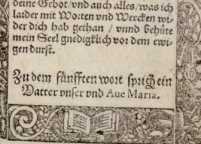 deine Gebot/ vnd auch alles/ was ich
laider mit Worten vnd Wercken wi-
der dich hab gethan / vnnd behüte
mein Seel gnediglich vor dem ewi-
gen durst.
Zu dem fünfften wort sprich ein
Vatter vnser vnd Aue Maria.